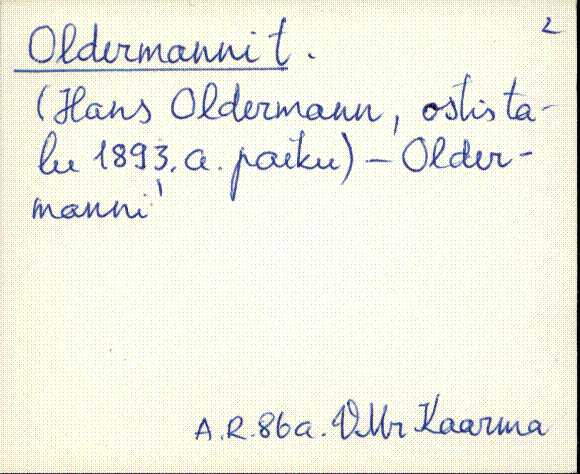 2
Oldermanni t.
(Hans Oldermann, ostis ta-
lu 1893. a. paiku) – Older-
manni
A.R. 86a. VMr Kaarma